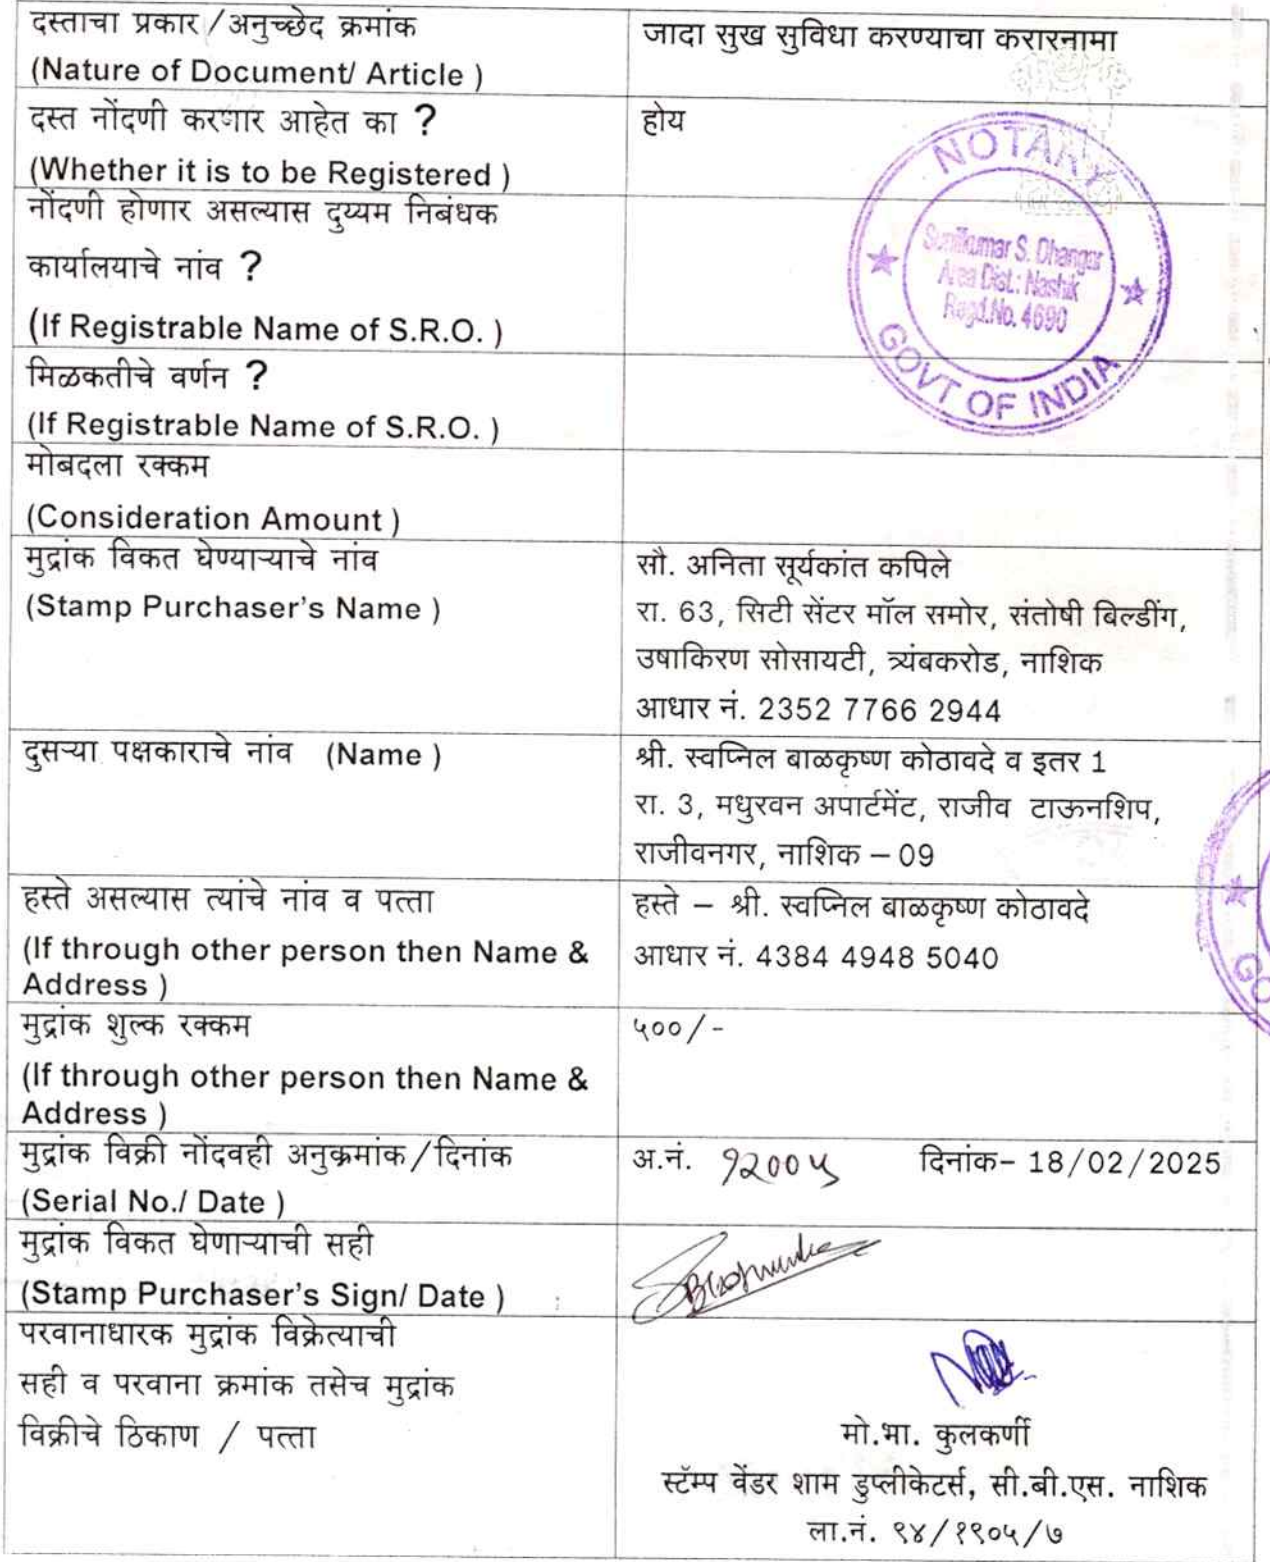 दस्ताचा प्रकार /अनुच्छेद क्रमांक
(Nature of Document/ Article )
जादा सुख सुविधा करण्याचा करारनामा
दस्त नोंदणी करणार आहेत का ?
(Whether it is to be Registered )
होय
नोंदणी होणार असल्यास दुय्यम निबंधक
कार्यालयाचे नांव ?
(If Registrable Name of S.R.O. )
NOTARY
Sunilkumar S. Dhangar
Area Dist.: Nashik
Regd.No. 4690
GOVT OF INDIA
मिळकतीचे वर्णन ?
(If Registrable Name of S.R.O. )
मोबदला रक्कम
(Consideration Amount )
मुद्रांक विकत घेण्याऱ्याचे नांव
(Stamp Purchaser's Name )
सौ. अनिता सूर्यकांत कपिले
रा. 63, सिटी सेंटर मॉल समोर, संतोषी बिल्डींग,
उषाकिरण सोसायटी, त्र्यंबकरोड, नाशिक
आधार नं. 2352 7766 2944
दुसऱ्या पक्षकाराचे नांव (Name )
श्री. स्वप्निल बाळकृष्ण कोठावदे व इतर 1
रा. 3, मधुरवन अपार्टमेंट, राजीव टाऊनशिप,
राजीवनगर, नाशिक – 09
हस्ते असल्यास त्यांचे नांव व पत्ता
(If through other person then Name &
Address )
हस्ते – श्री. स्वप्निल बाळकृष्ण कोठावदे
आधार नं. 4384 4948 5040
GO
मुद्रांक शुल्क रक्कम
(If through other person then Name &
Address )
५००/-
मुद्रांक विक्री नोंदवही अनुक्रमांक/दिनांक
(Serial No./ Date )
अ.नं. १२००५ दिनांक- 18/02/2025
मुद्रांक विकत घेणाऱ्याची सही
(Stamp Purchaser's Sign/ Date )
परवानाधारक मुद्रांक विक्रेत्याची
सही व परवाना क्रमांक तसेच मुद्रांक
विक्रीचे ठिकाण / पत्ता
मो.भा. कुलकर्णी
स्टॅम्प वेंडर शाम डुप्लीकेटर्स, सी.बी.एस. नाशिक
ला.नं. ९४/१९०५/७